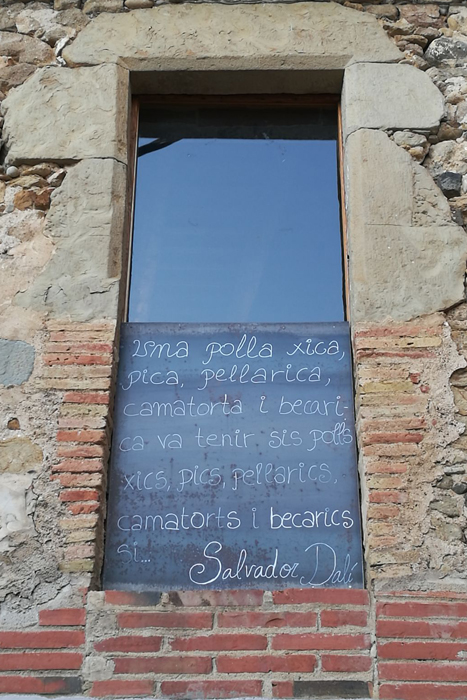 Una polla xica,
pica, pellarica,
camatorta i becari-
ca va tenir sis polls
xics, pics, pellarics,
camatorts i becarics
si...
Salvador Dalí